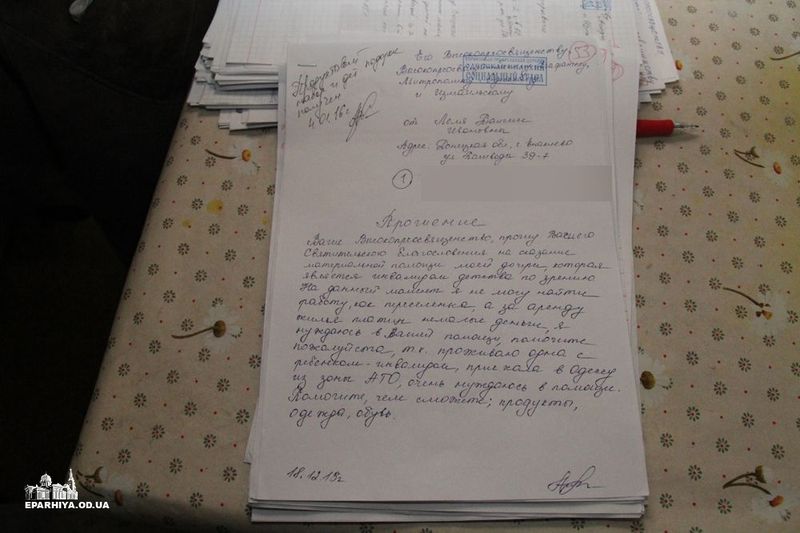 Продуктовый
набор и дет. подарок
получен
4.01.16г.
Его Высокопреосвященству,
Митрополиту
и Измаильскому
ОДЕССКАЯ ЕПАРХИЯ
СОЦИАЛЬНЫЙ ОТДЕЛ
от Леся
Ивановны
Адрес: Донецкая обл., г.
ул. 39-7
1
Прошение
Ваше Высокопреосвященство, прошу Вашего
Святительского благословения на оказание
материальной помощи моей дочери, которая
является инвалидом детства по зрению.
На данный момент я не могу найти
работу, как переселенка, а за аренду
жилья платим немалые деньги, я
нуждаюсь в Вашей помощи, помогите
пожалуйста, т.к. проживаю одна с
ребенком-инвалидом, приехала в Одессу
из зоны АТО, очень нуждаюсь в помощи.
Помогите, чем сможете; продукты,
одежда, обувь.
18.12.15г
EPARHIYA.OD.UA